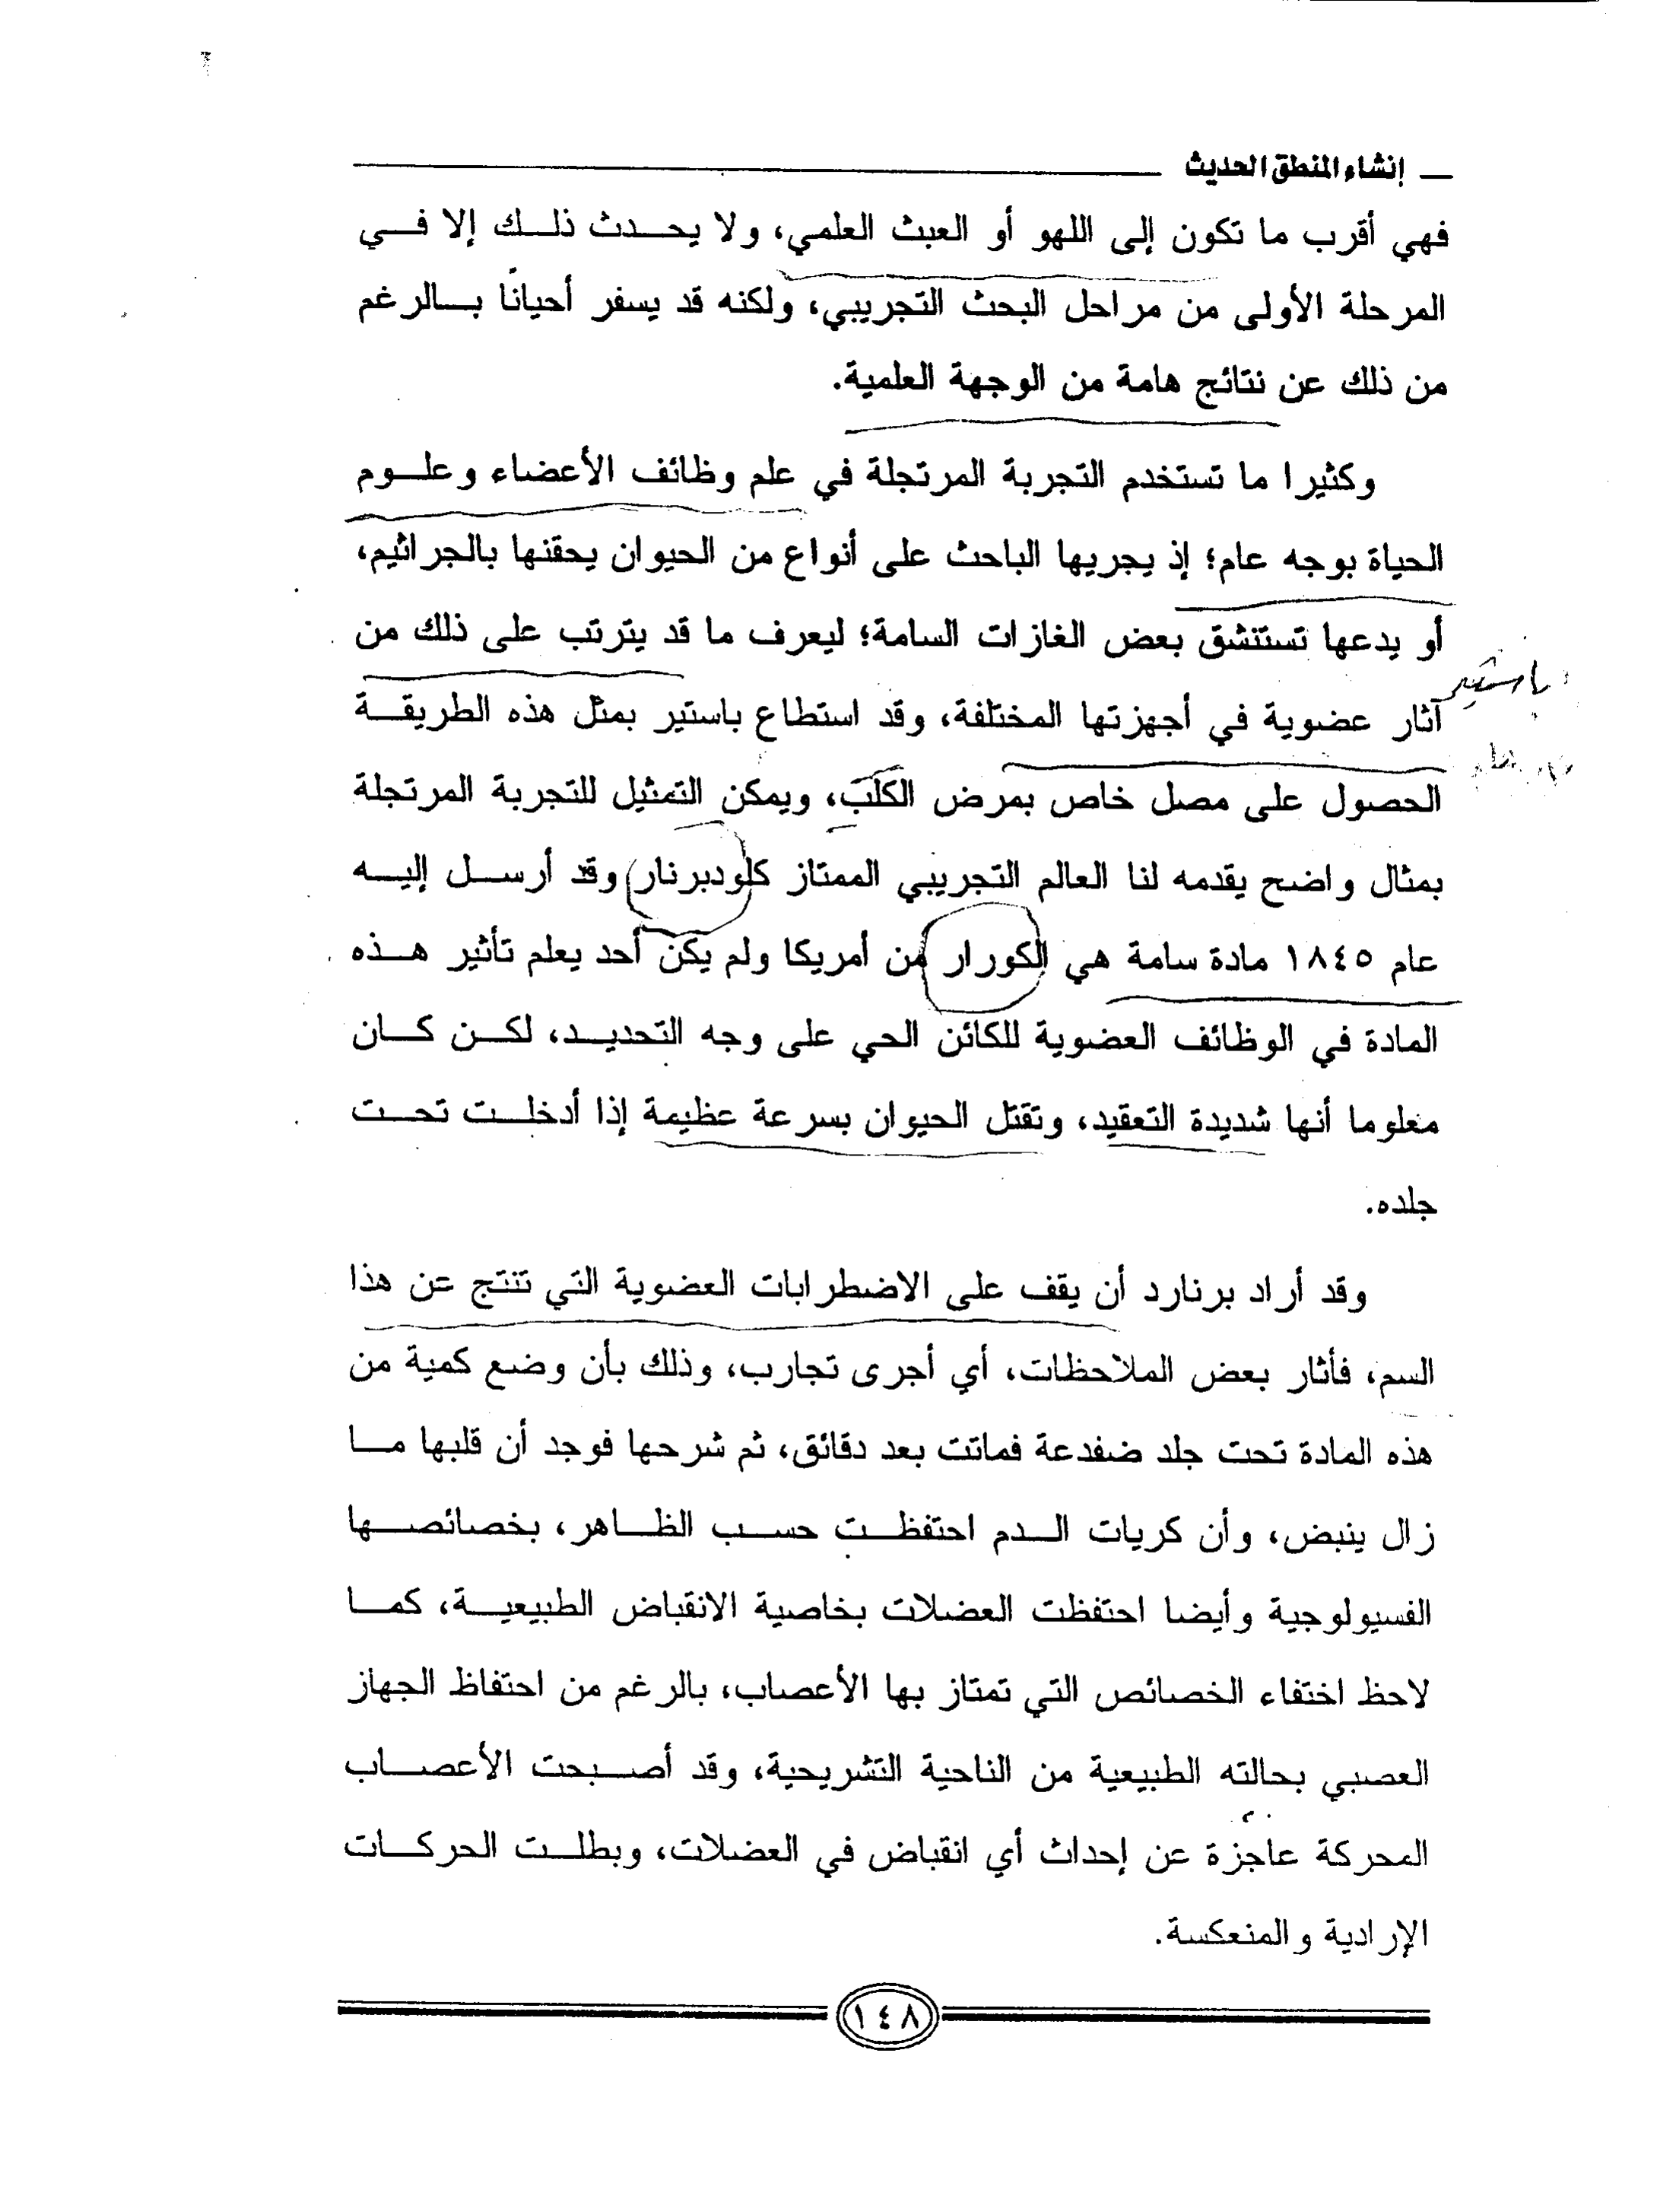 إنشاء المنطق الحديث
فهي أقرب ما تكون إلى اللهو أو العبث العلمي، ولا يحدث ذلك إلا في
المرحلة الأولى من مراحل البحث التجريبي، ولكنه قد يسفر أحياناً بالرغم
من ذلك عن نتائج هامة من الوجهة العلمية.
وكثيرا ما تستخدم التجربة المرتجلة في علم وظائف الأعضاء وعلوم
الحياة بوجه عام؛ إذ يجريها الباحث على أنواع من الحيوان يحقنها بالجراثيم،
أو يدعها تستنشق بعض الغازات السامة؛ ليعرف ما قد يترتب على ذلك من
باستير
آثار عضوية في أجهزتها المختلفة، وقد استطاع باستير بمثل هذه الطريقة
الحصول على مصل خاص بمرض الكلَب، ويمكن التمثيل للتجربة المرتجلة
بمثال واضح يقدمه لنا العالم التجريبي الممتاز كلودبرنار) وقد أرسل إليه
عام ١٨٤٥ مادة سامة هي الكورار من أمريكا ولم يكن أحد يعلم تأثير هذه
المادة في الوظائف العضوية للكائن الحي على وجه التحديد، لكن كان
معلوما أنها شديدة التعقيد، وتقتل الحيوان بسرعة عظيمة إذا أدخلت تحت
جلده.
وقد أراد برنارد أن يقف على الاضطرابات العضوية التي تنتج عن هذا
السم، فأثار بعض الملاحظات، أي أجرى تجارب، وذلك بأن وضع كمية من
هذه المادة تحت جلد ضفدعة فماتت بعد دقائق، ثم شرحها فوجد أن قلبها ما
زال ينبض، وأن كريات الدم احتفظت حسب الظاهر، بخصائصها
الفسيولوجية وأيضا احتفظت العضلات بخاصية الانقباض الطبيعية، كما
لاحظ اختفاء الخصائص التي تمتاز بها الأعصاب، بالرغم من احتفاظ الجهاز
العصبي بحالته الطبيعية من الناحية التشريحية، وقد أصبحت الأعصاب
المحركة عاجزة عن إحداث أي انقباض في العضلات، وبطلت الحركات
الإرادية والمنعكسة.
١٤٨